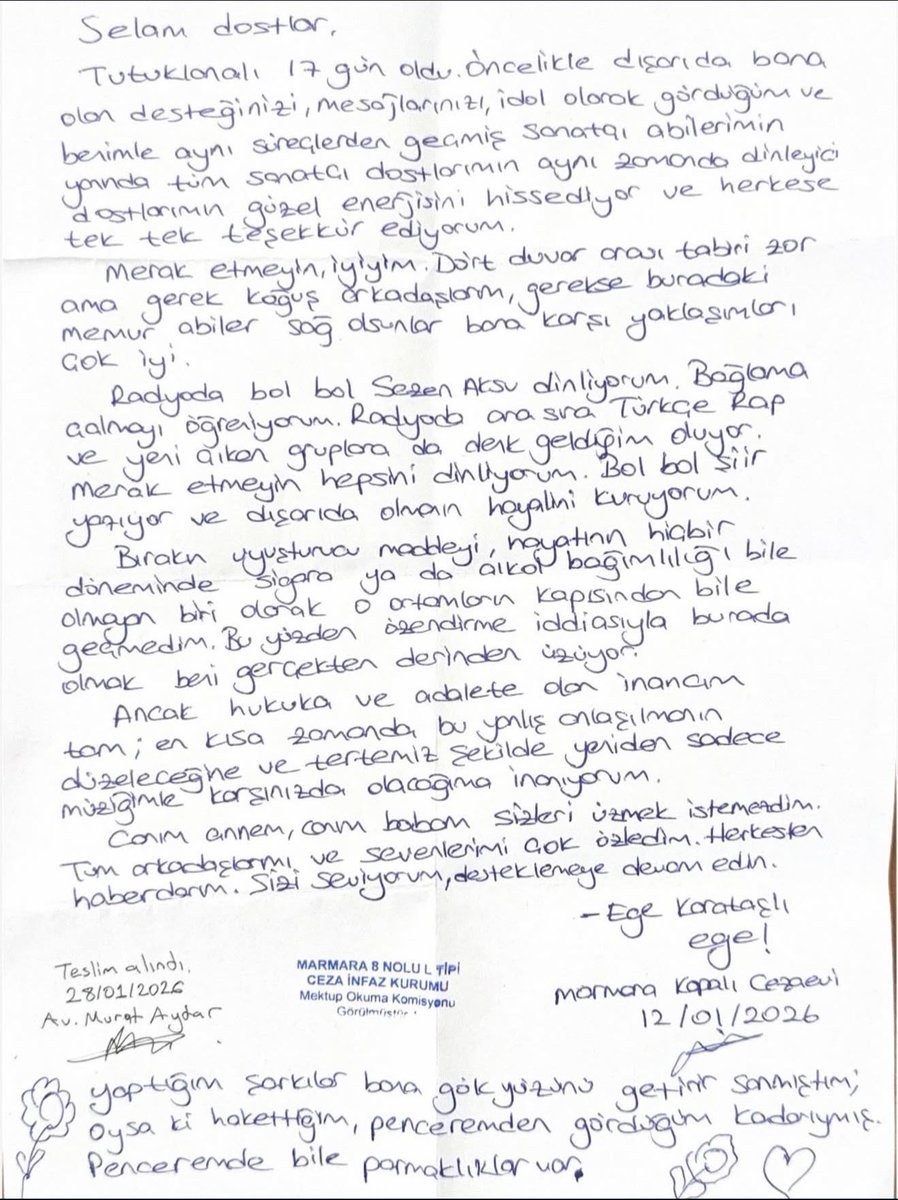 Selam dostlar,
Tutuklanalı 17 gün oldu. Öncelikle dışarıda bana
olan desteğinizi, mesajlarınızı, idol olarak gördüğüm ve
benimle aynı süreçlerden geçmiş sanatçı abilerimin
yanında tüm sanatçı dostlarımın aynı zamanda dinleyici
dostlarımın güzel enerjisini hissediyor ve herkese
tek tek teşekkür ediyorum.
Merak etmeyin, iyiyim. Dört duvar arası tabiri zor
ama gerek koğuş arkadaşlarım, gerekse buradaki
memur abiler sağ olsunlar bana karşı yaklaşımları
çok iyi.
Radyoda bol bol Sezen Aksu dinliyorum. Bağlama
çalmayı öğreniyorum. Radyoda ara sıra Türkçe Rap
ve yeni çıkan gruplara da denk geldiğim oluyor.
Merak etmeyin hepsini dinliyorum. Bol bol şiir
yazıyor ve dışarıda olmanın hayalini kuruyorum.
Bırakın uyuşturucu maddeyi, hayatının hiçbir
döneminde sigara ya da alkol bağımlılığı bile
olmayan biri olarak o ortamların kapısından bile
geçmedim. Bu yüzden özendirme iddiasıyla burada
olmak beni gerçekten derinden üzüyor.
Ancak hukuka ve adalete olan inancım
tam; en kısa zamanda bu yanlış anlaşılmanın
düzeleceğine ve tertemiz şekilde yeniden sadece
müziğimle karşınızda olacağıma inanıyorum.
Canım annem, canım babam sizleri üzmek istemezdim.
Tüm arkadaşlarımı ve sevenlerimi çok özledim. Herkesten
haberdarım. Sizi seviyorum, desteklemeye devam edin.
- Ege Karataşlı
ege!
Marmara Kapalı Cezaevi
12/01/2026
Teslim alındı.
28/01/2026
Av. Murat Aydar
MARMARA 8 NOLU L TİPİ
CEZA İNFAZ KURUMU
Mektup Okuma Komisyonu
Görülmüştür.
yaptığım şarkılar bana gökyüzünü getirir sanmıştım;
oysa ki hakettiğim, penceremden gördüğüm kadarıymış.
Penceremde bile parmaklıklar var.